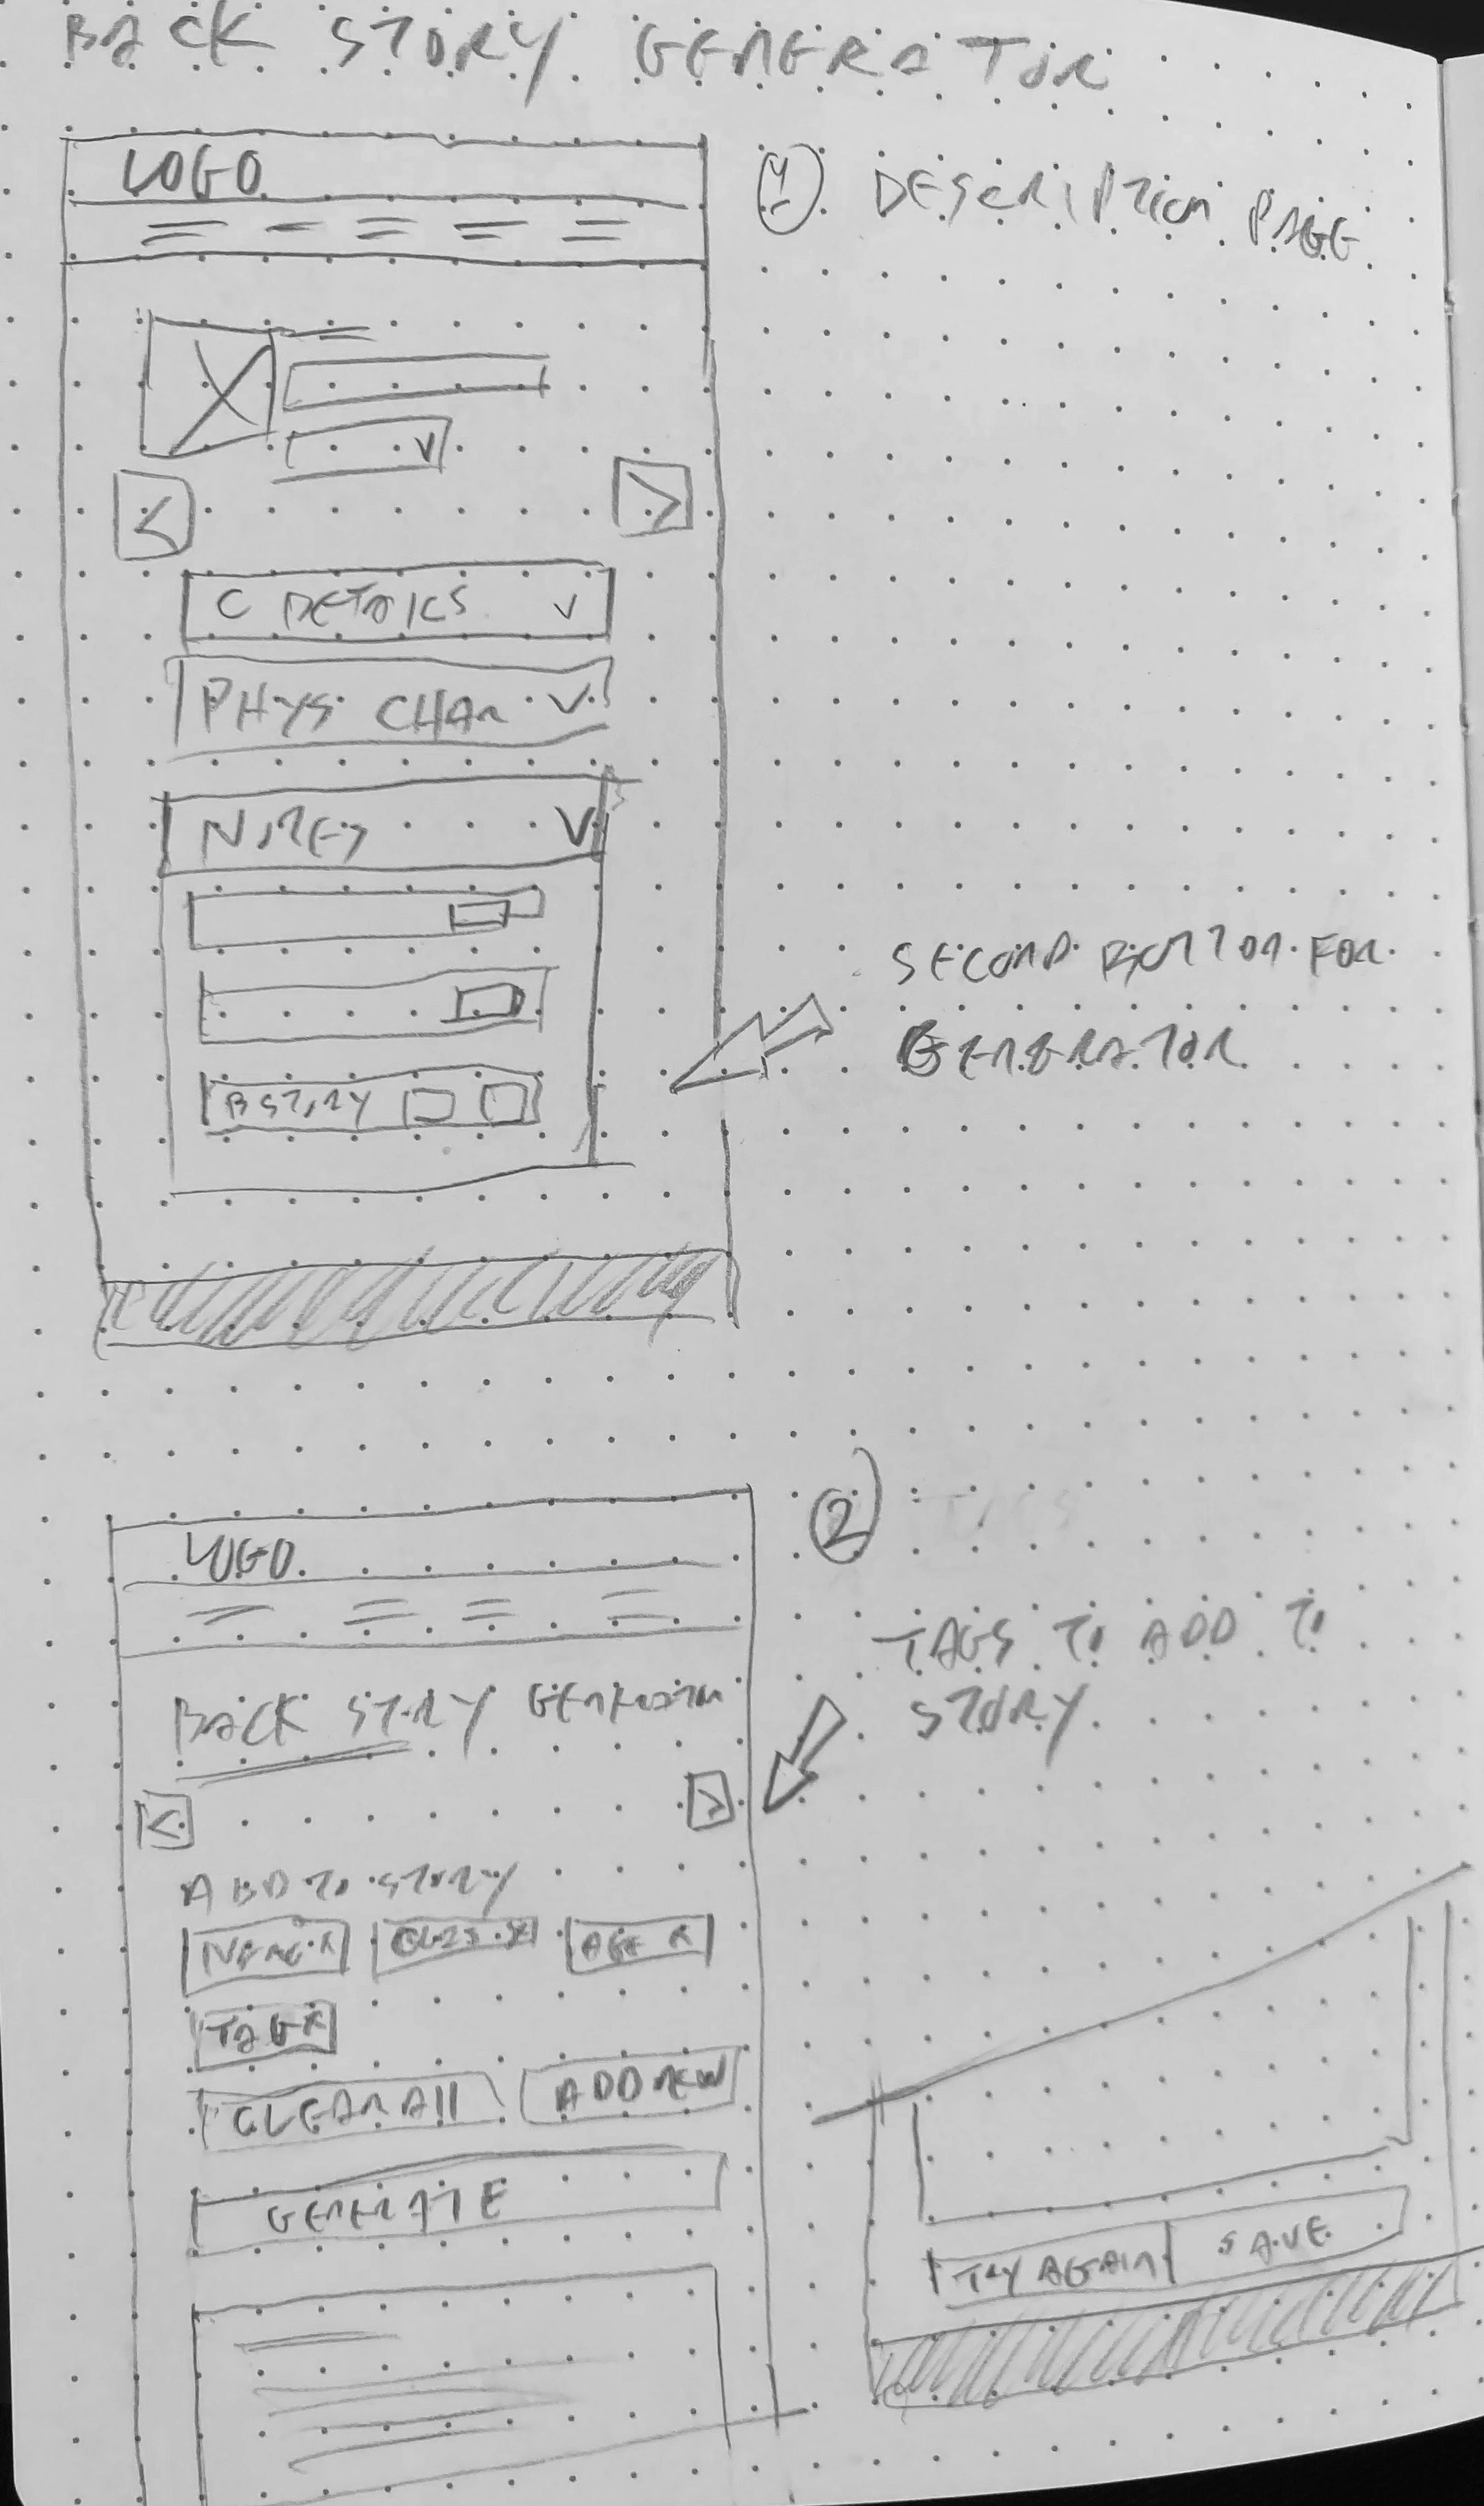 BACK STORY GENERATOR
LOGO
1 DESCRIPTION PAGE
<
>
C DETAILS V
PHYS CHAR V
NOTES V
SECOND BUTTON FOR
GENERATOR
B STORY
LOGO
2
TAGS TO ADD TO
STORY
BACK STORY GENERATOR
<
>
ADD TO STORY
NAME X CLASS X AGE X
TAG X
CLEAR All ADD NEW
GENERATE
TRY AGAIN SAVE